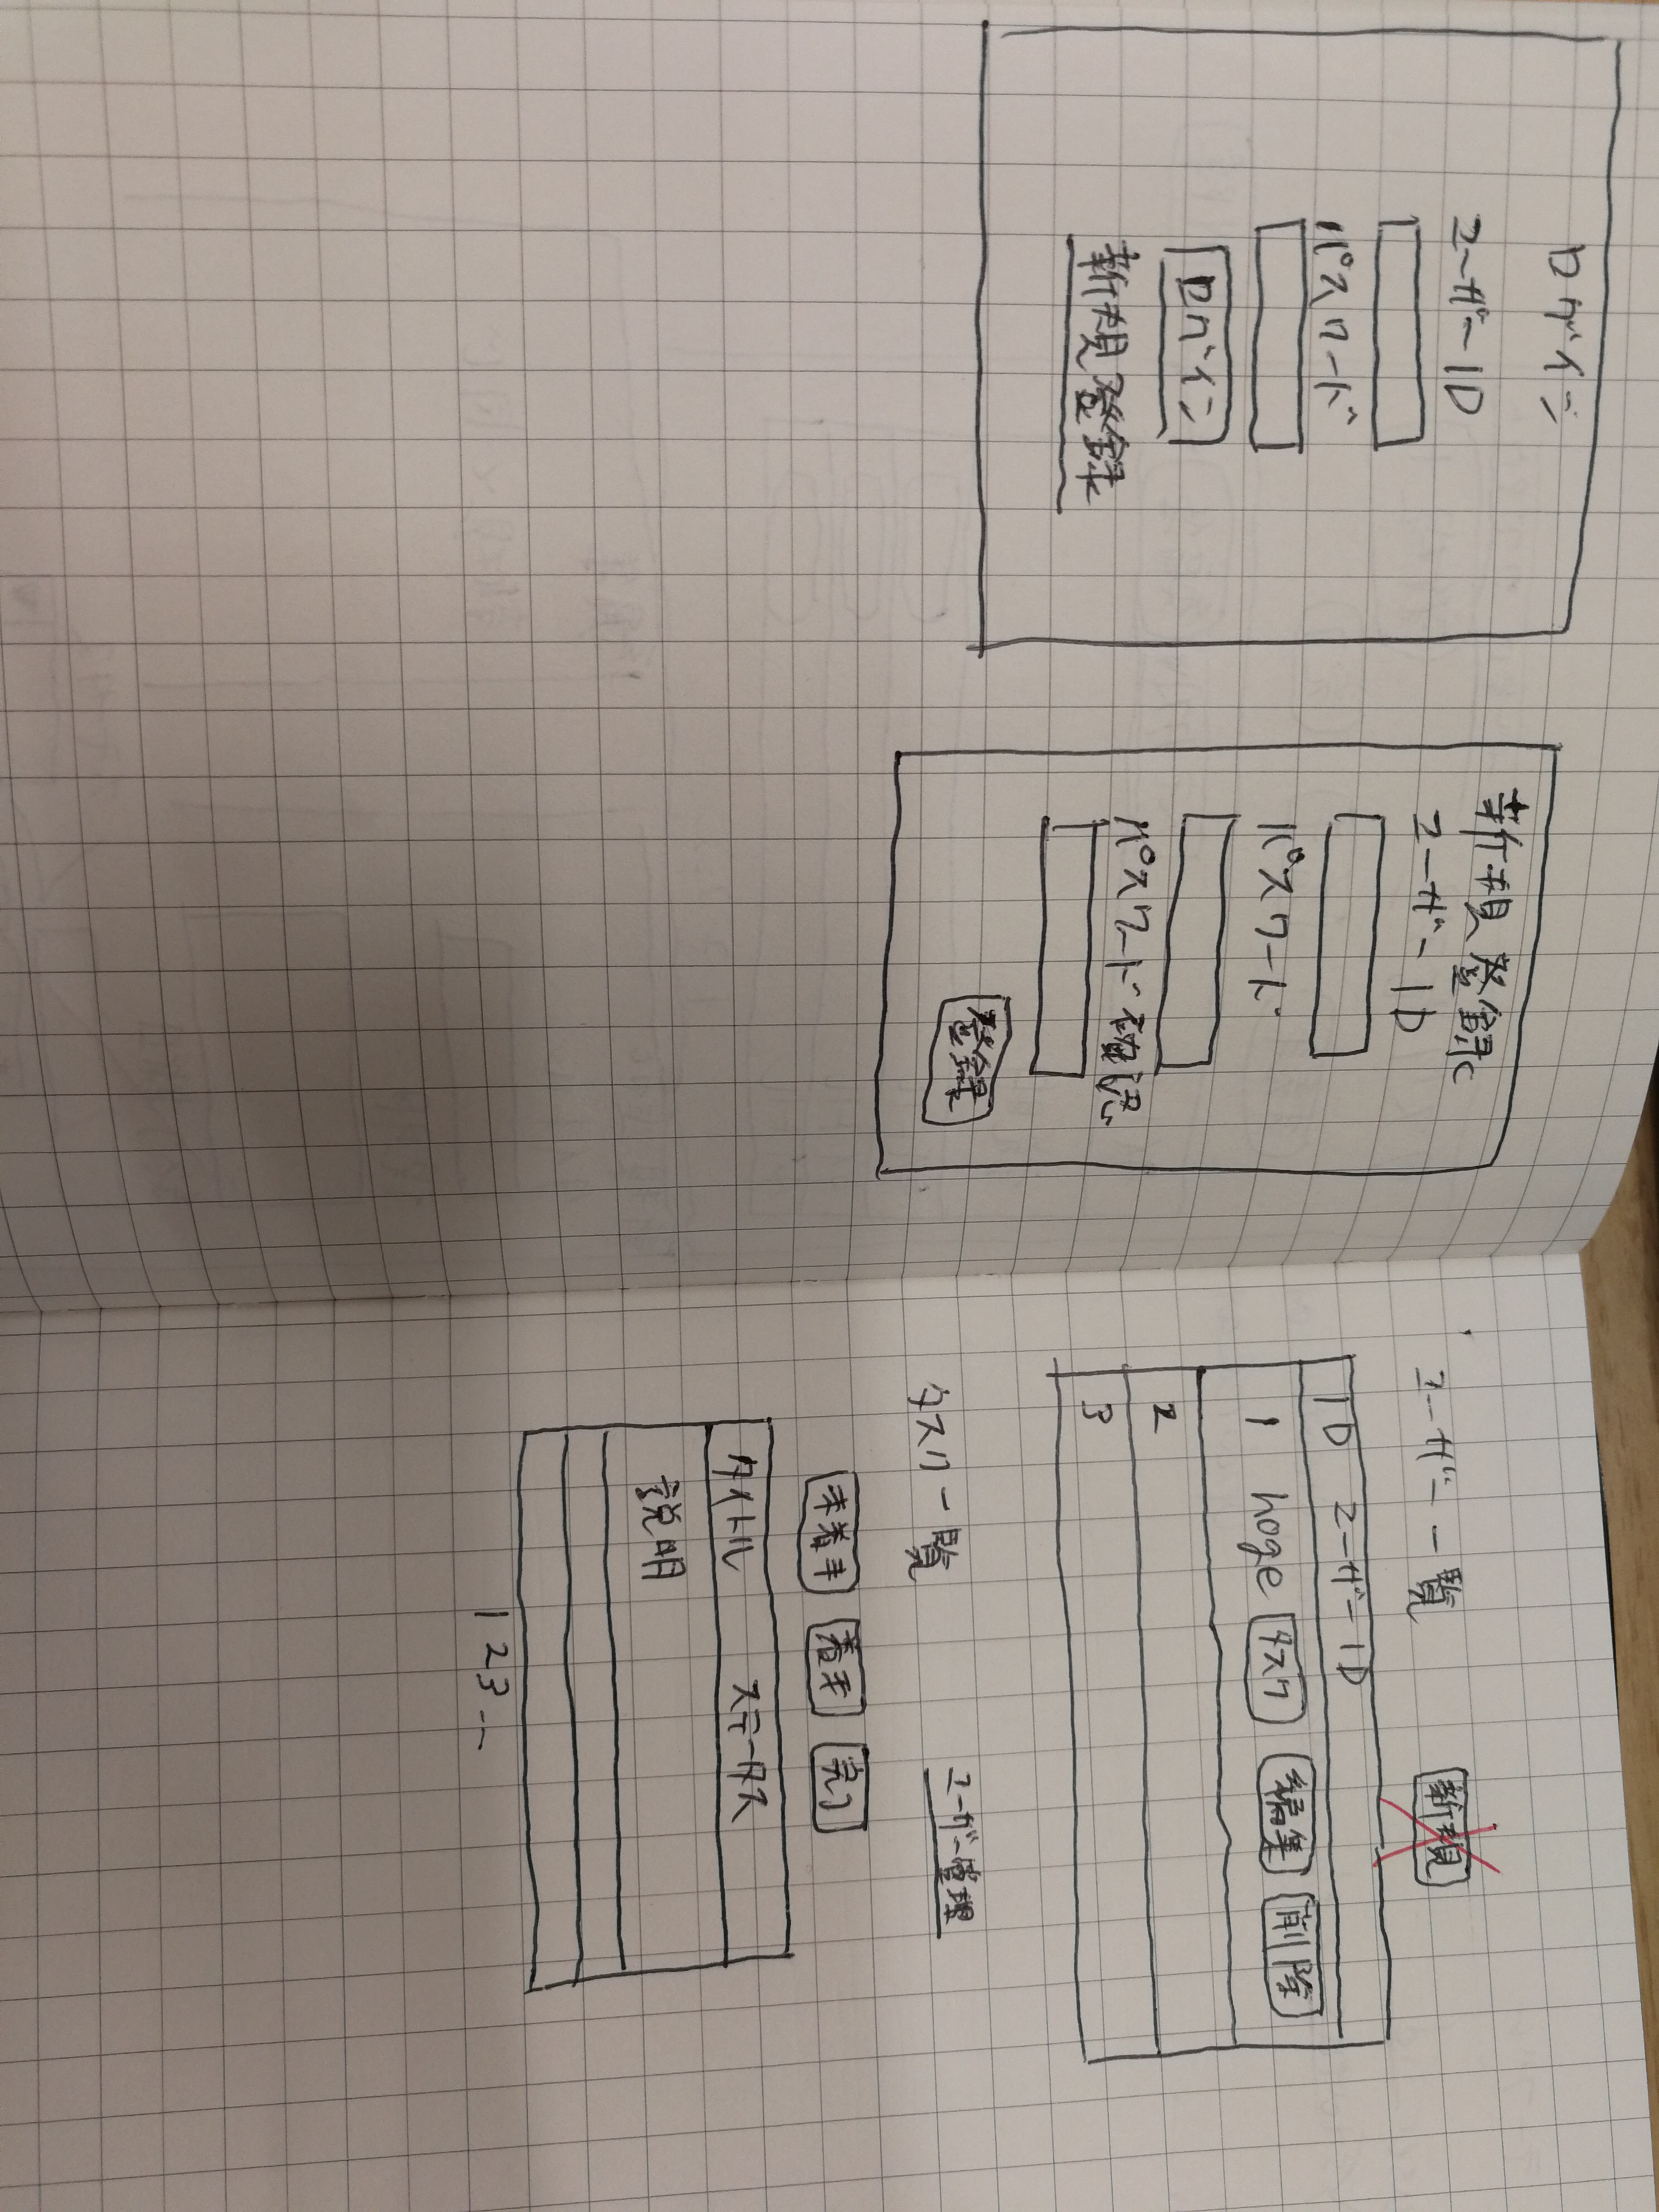 ログイン
ユーザーID
パスワード
ログイン
新規登録
新規登録
ユーザーID
パスワード
パスワード確認
登録
ユーザー一覧 新規
ID ユーザーID
1 hoge タスク 編集 削除
2
3
タスク一覧 ユーザー管理
未着手 着手 完了
タイトル ステータス
説明
1 2 3 …